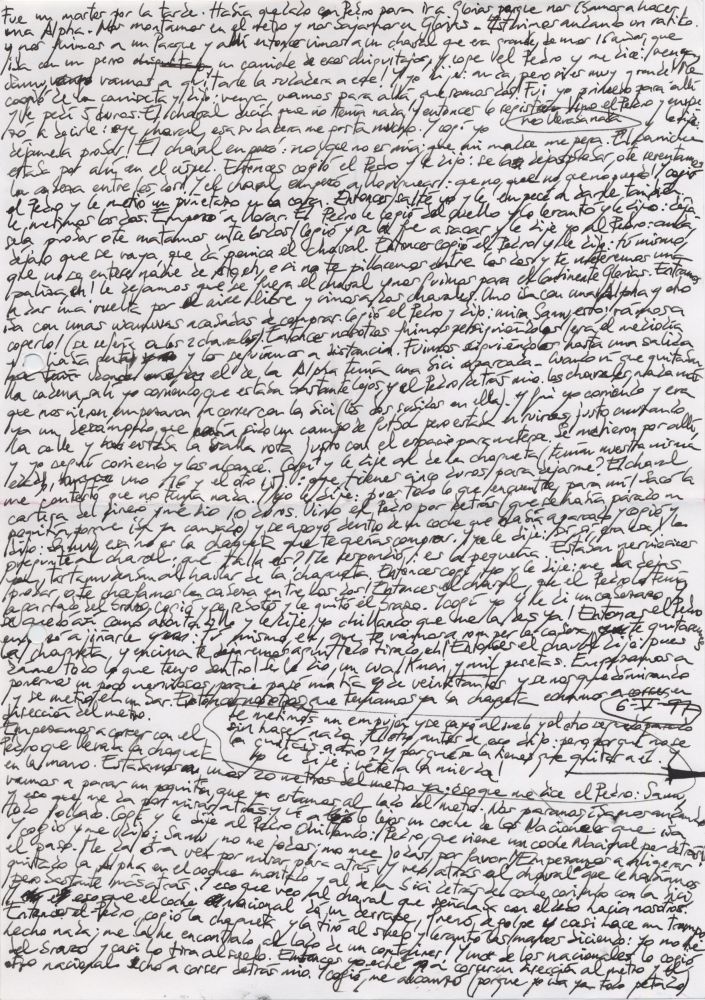 Fue un martes por la tarde. Había quedado con Pedro para ir a Glorias porque nos íbamos a hacer
una Alpha. Nos montamos en el metro y nos bajamos en Glorias. Estuvimos andando un ratito
y nos fuimos a un parque y allí entonces vimos a un chaval que era grande, de unos 15 años que
iba con un perro un caniche de esos chiquitajos, y cope vel Pedro y me dice: venga
Samu, vamos a quitarle la sudadera a este! Y yo le : nunca, pero si es muy grande! Me
cogió de la camiseta y dijo: venga, vamos para allá que somos dos. Fui yo primero para allí
y le pedí 5 duros. El chaval decía que no tenía nada, y entonces lo registro. Vino el Pedro y empe
zó a decirle: oye chaval, esa sudadera me gusta mucho. Y cogí yo no llevas nada y le dije:
déjamela probar! El chaval empezó: no, que no es mía, que mi madre me pega. El caniche
estaba por ahí en el césped. Entonces cogió el Pedro y le dijo: se la dejas probar, o te reventamos
la cabeza entre los dos! Y el chaval empezó a lloriquear: que no, que no, que no puedo! Cogió
el Pedro y le metió un puñetazo en la cara. Entonces salté yo y le empecé a dar también
le metimos los dos. Empezó a llorar. El Pedro le cogió del cuello y lo levantó y le dijo: déja-
sela probar o te matamos entre los dos! Cogió y se la fue a sacar y le dije yo al Pedro: anda,
déjalo que se vaya, que da pánico el chaval. Entonces cogió el Pedro y le dijo: tú mismo,
que no se entere nadie de algo eh, si no te pillaremos entre los dos y te meteremos una
paliza, eh! Le dejamos que se fuera el chaval y nos fuimos para el Continente Glorias. Entramos
a dar una vuelta por el aire libre y vimos a dos chavales. Uno iba con una Alpha y otro
iba con unas wambas acabadas de comprar. Cogió el Pedro y dijo: mira Samu, esto! Vamos a
cogerlo! (se refería a los 2 chavales) Entonces nosotros fuimos persiguiéndoles (era el mediodía
y hacía y los seguíamos a distancia. Fuimos siguiéndoles hasta una salida
el de la Alpha tenía una bici aparcada. Cuando vi que quitaban
la cadena, salí yo corriendo, que estaba bastante lejos y el Pedro detrás mío. Los chavales nada más
que nos vieron, empezaron a correr con la bici (los dos subidos en ella) y fui yo corriendo y era
ya un descampado que había sido un campo de fútbol pero estaba en ruinas, justo cruzando
la calle y estaba la valla rota justo con el espacio para meterse. Se metieron por allí
y yo seguí corriendo y los alcancé. Cogí y le dije al de la chaqueta (tenían nuestra misma
edad, uno 16 y el otro 15): oye, tienes cinco duros para dejarme? El chaval
me contestó que no tenía nada. Y yo le dije: pues todo lo que encuentre para mí! Sacó la
cartera del dinero y me dio 10 duros. Vino el Pedro por detrás (que se había parado un
poquito porque iba ya cansado) y se apoyó dentro de un coche que había aparcado y cogió y
dijo: Samu, esa no es la chaqueta que te querías comprar? Y le dije: sí, sí, era esa! Y le
pregunté al chaval: qué talla es? Me respondió: es la pequeña. Estaban nerviosos
y tartamudeaban al hablar de la chaqueta. Entonces cogí yo y le dije: me la dejas
probar, o te chafamos la cabeza entre los dos! Entonces el chaval, que el Pedro lo tenía
agarrado del brazo, cogió y se soltó y le quitó el brazo. Cogí yo y le di un cabezazo y
se quedó así como y le dije yo chillando: que me la des ya! Entonces el Pedro
empezó a tirarle y : tú mismo, eh, que te vamos a romper la cabeza, te quitaremos
la chaqueta, y encima te dejaremos aquí todo tirado, eh! Entonces el chaval dijo: pues
dame todo lo que tengo dentro! Se le dio, un walkman y mil pesetas. Empezamos a
ponernos un poco nerviosos, porque pasó un tía de veintitantos y se nos quedó mirando
y se metió en un bar. Entonces nosotros que teníamos ya la chaqueta echamos a correr en
dirección del metro.
6-V-97
Empezamos a correr con el
Pedro que llevaba la chaqueta
en la mano. Estábamos a unos 20 metros del metro ya, eso que me dice el Pedro: Samu,
le metimos un empujón y se cayó al suelo y el otro se quedó
sin hacer nada. El otro antes de eso dijo: pero por qué no se
la quitáis a otro? y por qué se la tienes que quitar a él? Y
yo le dije: vete a la mierda!
vamos a parar un poquito que ya estamos al lado del metro. Nos paramos, íbamos andando
y eso que me da por mirar atrás y ve a lo lejos un coche de los Nacionales que iba
todo follado. Copé y le dije al Pedro chillando: Pedro, que viene un coche Nacional por detrás!
Y cogió y me dijo: Samu, no me jodas, no me jodas, por favor! Empezamos a aligerar
el paso. Me da otra vez por mirar para atrás y veo atrás al chaval que le habíamos
quitado la Alpha en el coche montado y al de la bici detrás del coche, corriendo con la bici
pero bastante más atrás. Y eso que veo al chaval que señalaba con el dedo hacia nosotros.
Y eso que el coche Nacional da un derrape, y frenó a golpe y casi hace un trompo.
Entonces el Pedro, cogió la chaqueta, y la tiró al suelo y levantó las manos diciendo: yo no he
hecho nada; me la he encontrado al lado de un container! Y uno de los nacionales lo cogió
del brazo y casi lo tira al suelo. Entonces yo eché a correr en dirección al metro y el
otro nacional echó a correr detrás mío. Y cogió, me alcanzó (porque yo iba ya todo petado)